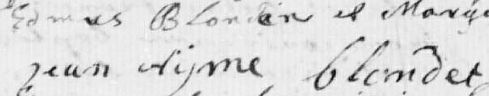 Edmus Blondin et Marg
jean Ayme blondet